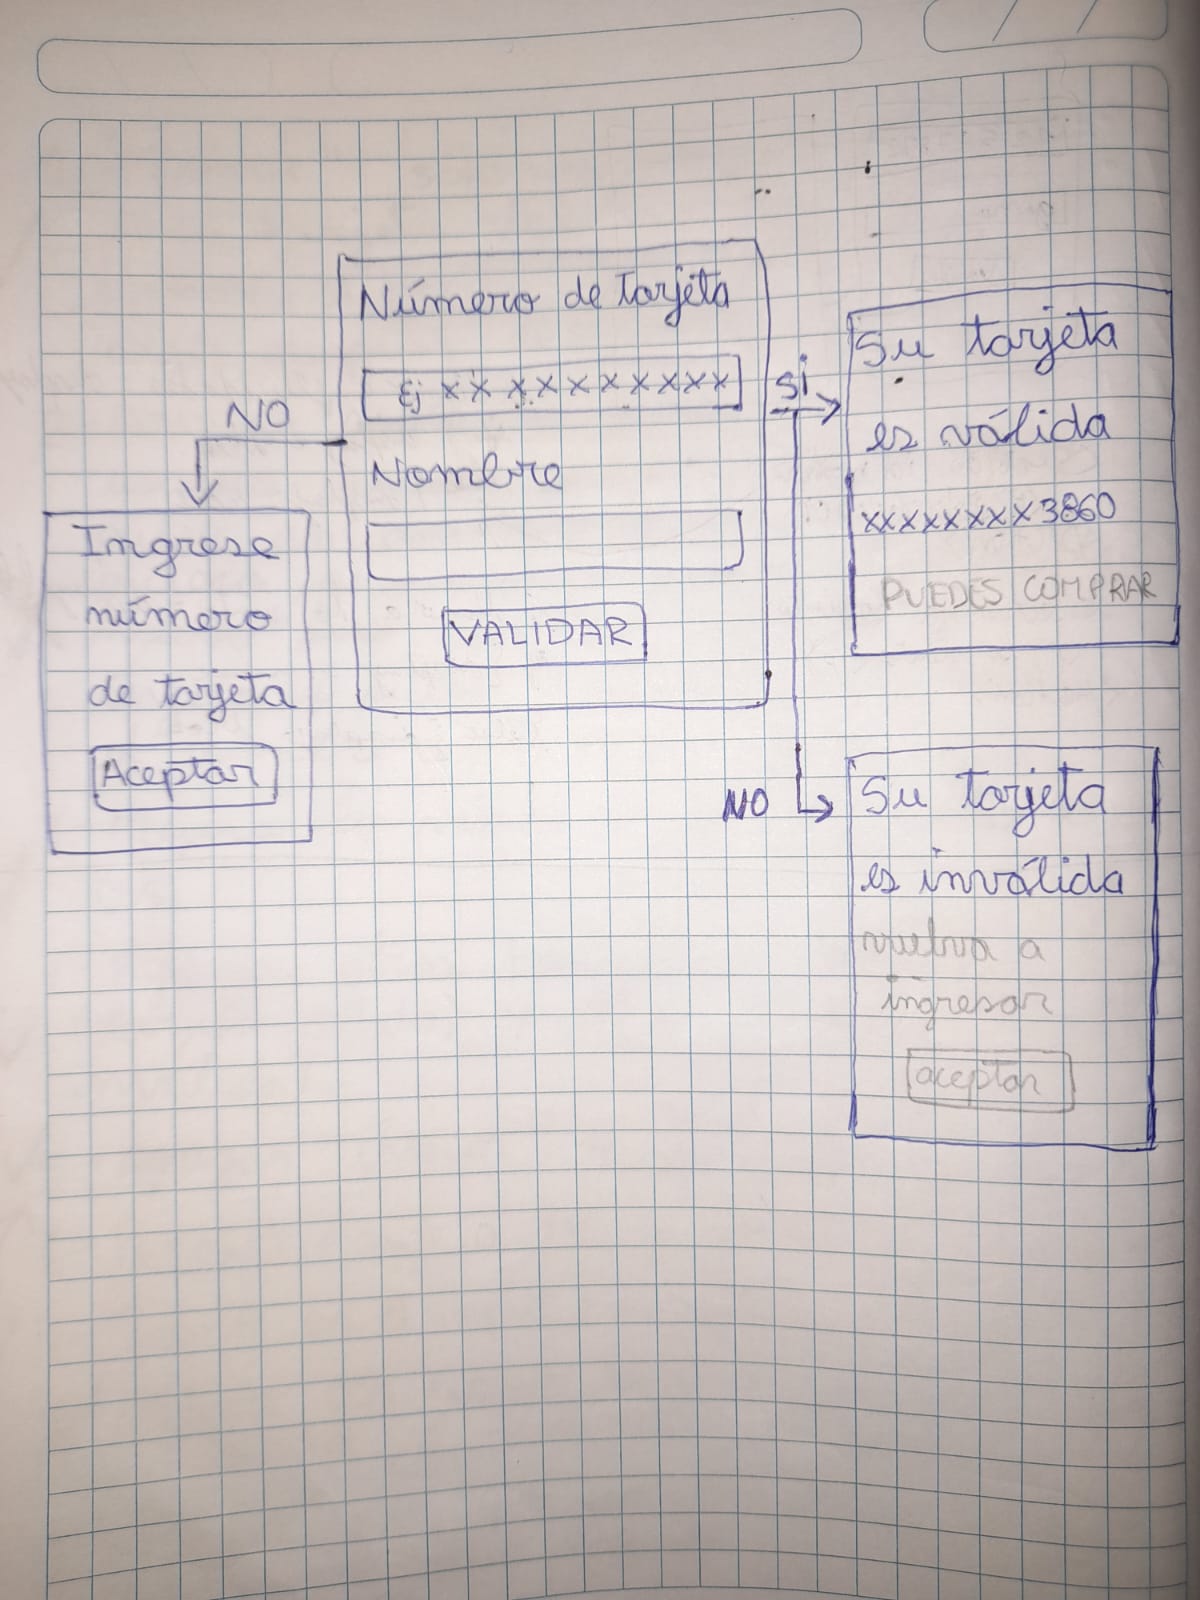 Número de tarjeta
Ej xxxxxxxxxx
Nombre
VALIDAR
NO
Ingrese
número
de tarjeta
Aceptar
SI
Su tarjeta
es válida
xxxxxxxx3860
PUEDES COMPRAR
NO
Su tarjeta
es inválida
vuelva a
ingresar
aceptar